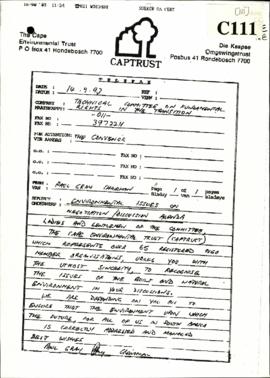 C111
The Cape
Environmental Trust
P O Box 41 Rondebosch 7700
Die Kaapse
Omgewingstrust
Posbus 41 Rondebosch 7700
CAPTRUST
TELEFAX
DATE :
DATUM :
14.9.93
REF :
COMPANY
TECHNICAL COMMITTEE ON FUNDAMENTAL
RIGHTS IN THE TRANSITION
-011-
FAX NO : 397224
FOR ATTENTION: THE CONVENOR
c.c. :
FAX NO :
c.c. :
FAX NO :
c.c. :
FAX NO :
FROM :
VAN :
PAUL GRAY CHAIRMAN
Page 1 of 1 pages
ENVIRONMENTAL ISSUES ON
NEGOTIATION/DISCUSSION AGENDA
LADIES AND GENTLEMEN OF THE COMMITTEE
THE CAPE ENVIRONMENTAL TRUST (CAPTRUST)
WHICH REPRESENTS OVER 65 REGISTERED
MEMBER ORGANISATIONS, URGES YOU WITH
THE UTMOST SINCERITY TO RECOGNISE
THE ISSUES OF THE BUILT AND NATURAL
ENVIRONMENT IN YOUR DISCUSSIONS.
WE ARE DEPENDING ON YOU ALL TO
ENSURE THAT THE ENVIRONMENT UPON WHICH
THE FUTURE FOR ALL OF US IN SOUTH AFRICA
IS CORRECTLY ADDRESSED AND MANAGED
BEST WISHES
PAUL GRAY
CHAIRMAN